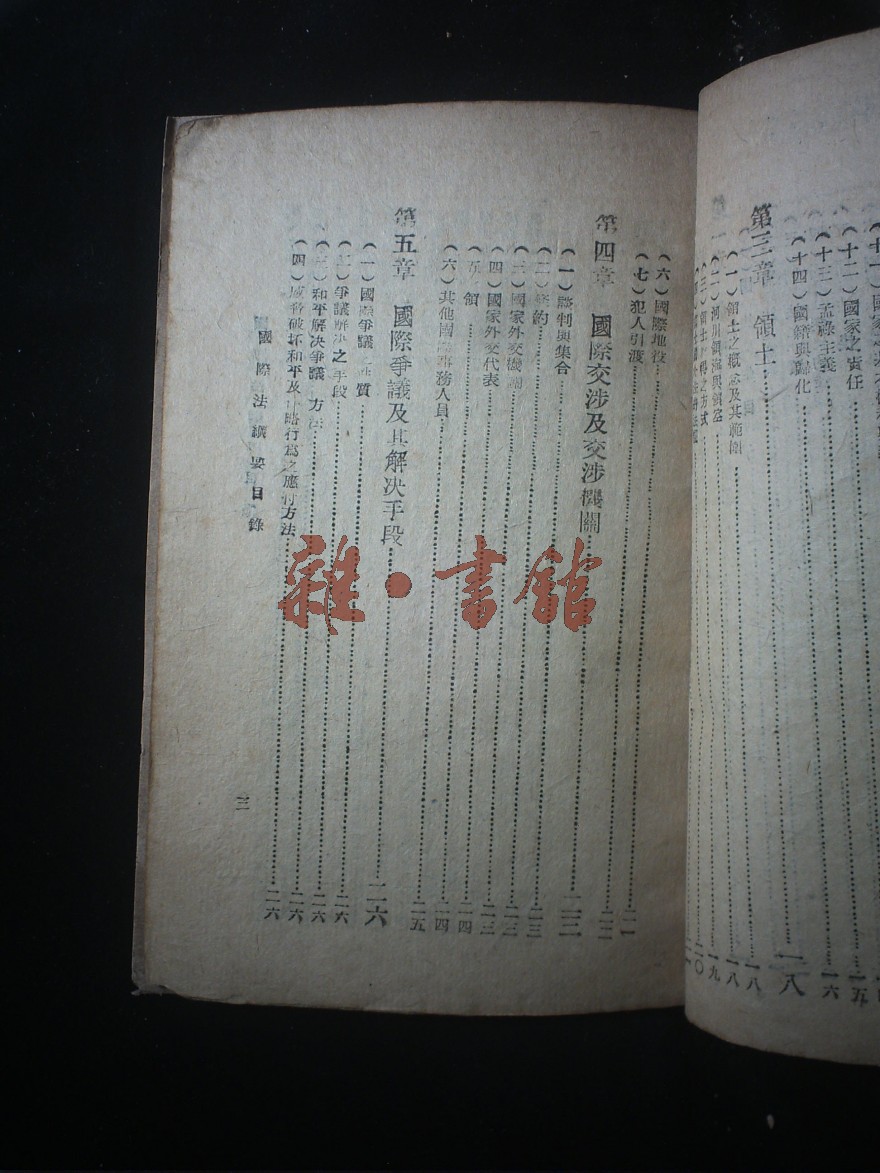 十二）國家之責任……一五
十三）孟祿主義……一六
十四）國籍與歸化
第三章 領土……一八
（一）領土之概念及其範圍……一八
（二）河川領海與領空……一八
（六）國際地役……二一
（七）犯人引渡……二二
第四章 國際交涉及交涉機關……二二
（一）談判與集合……二三
（二）條約……二三
（三）國家外交機關……二三
（四）國家外交代表……二四
領……二四
（六）其他國際事務人員……二五
第五章 國際爭議及其解决手段……二六
（一）國際爭議 性質……二六
（二）爭議解决之手段……二六
（三）和平解决爭議 方法……二六
（四）威脅破坏和平及 略行爲之應付方法……二六
國際法綱要目錄
三
雜·書館